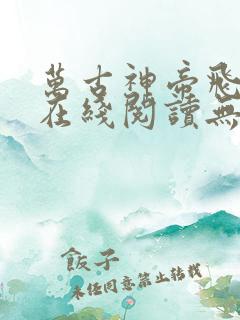 萬古神帝飛
在綫閱讀無
飯子
未經同意禁止轉載